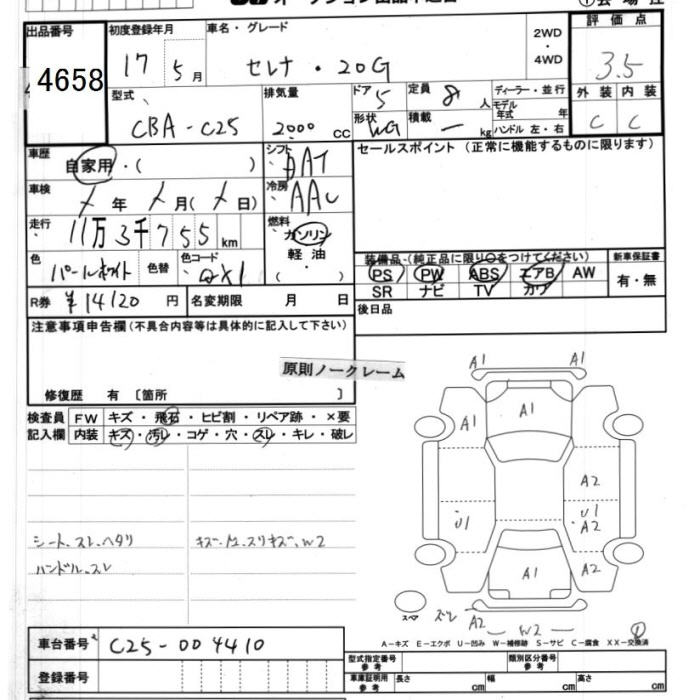 ①会場控
出品番号
4658
初度登録年月
17 5月
車名・グレード
セレナ・20G
2WD
・
4WD
評価点
3.5
外装 内装
C C
型式
CBA-C25
排気量
2000 cc
ドア
5
形状
WG
定員
8人
積載
— kg
ディーラー・並行
モデル年式 年
ハンドル 左・右
車歴
自家用・( )
車検
年 月( 日)
走行
11万3千755km
色
パールホワイト
色替
色コード
QX1
シフト
冷房
AAC
燃料
ガソリン
軽油
( )
セールスポイント(正常に機能するものに限ります)
装備品(純正品に限り○をつけてください)
PS PW ABS エアB AW
SR ナビ TV カワ
新車保証書
有・無
R券 ¥14120円
名変期限 月 日
後日品
注意事項申告欄(不具合内容等は具体的に記入して下さい)
原則ノークレーム
修復歴 有〔箇所 〕
検査員 FW キズ・飛石・ヒビ割・リペア跡・×要
記入欄 内装 キズ・汚レ・コゲ・穴・スレ・キレ・破レ
シート、スレ、ヘタリ
ハンドル、スレ
W2
A1 A1
A1
A1
A2
U1
A2
U1
A1
A2
スペア
A2
W2
①
A-キズ E-エクボ U-凹み W-補修跡 S-サビ C-腐食 XX-交換済
車台番号
C25-004410
登録番号
型式指定番号参考
類別区分番号参考
車庫証明用参考
長さ cm
幅 cm
高さ cm